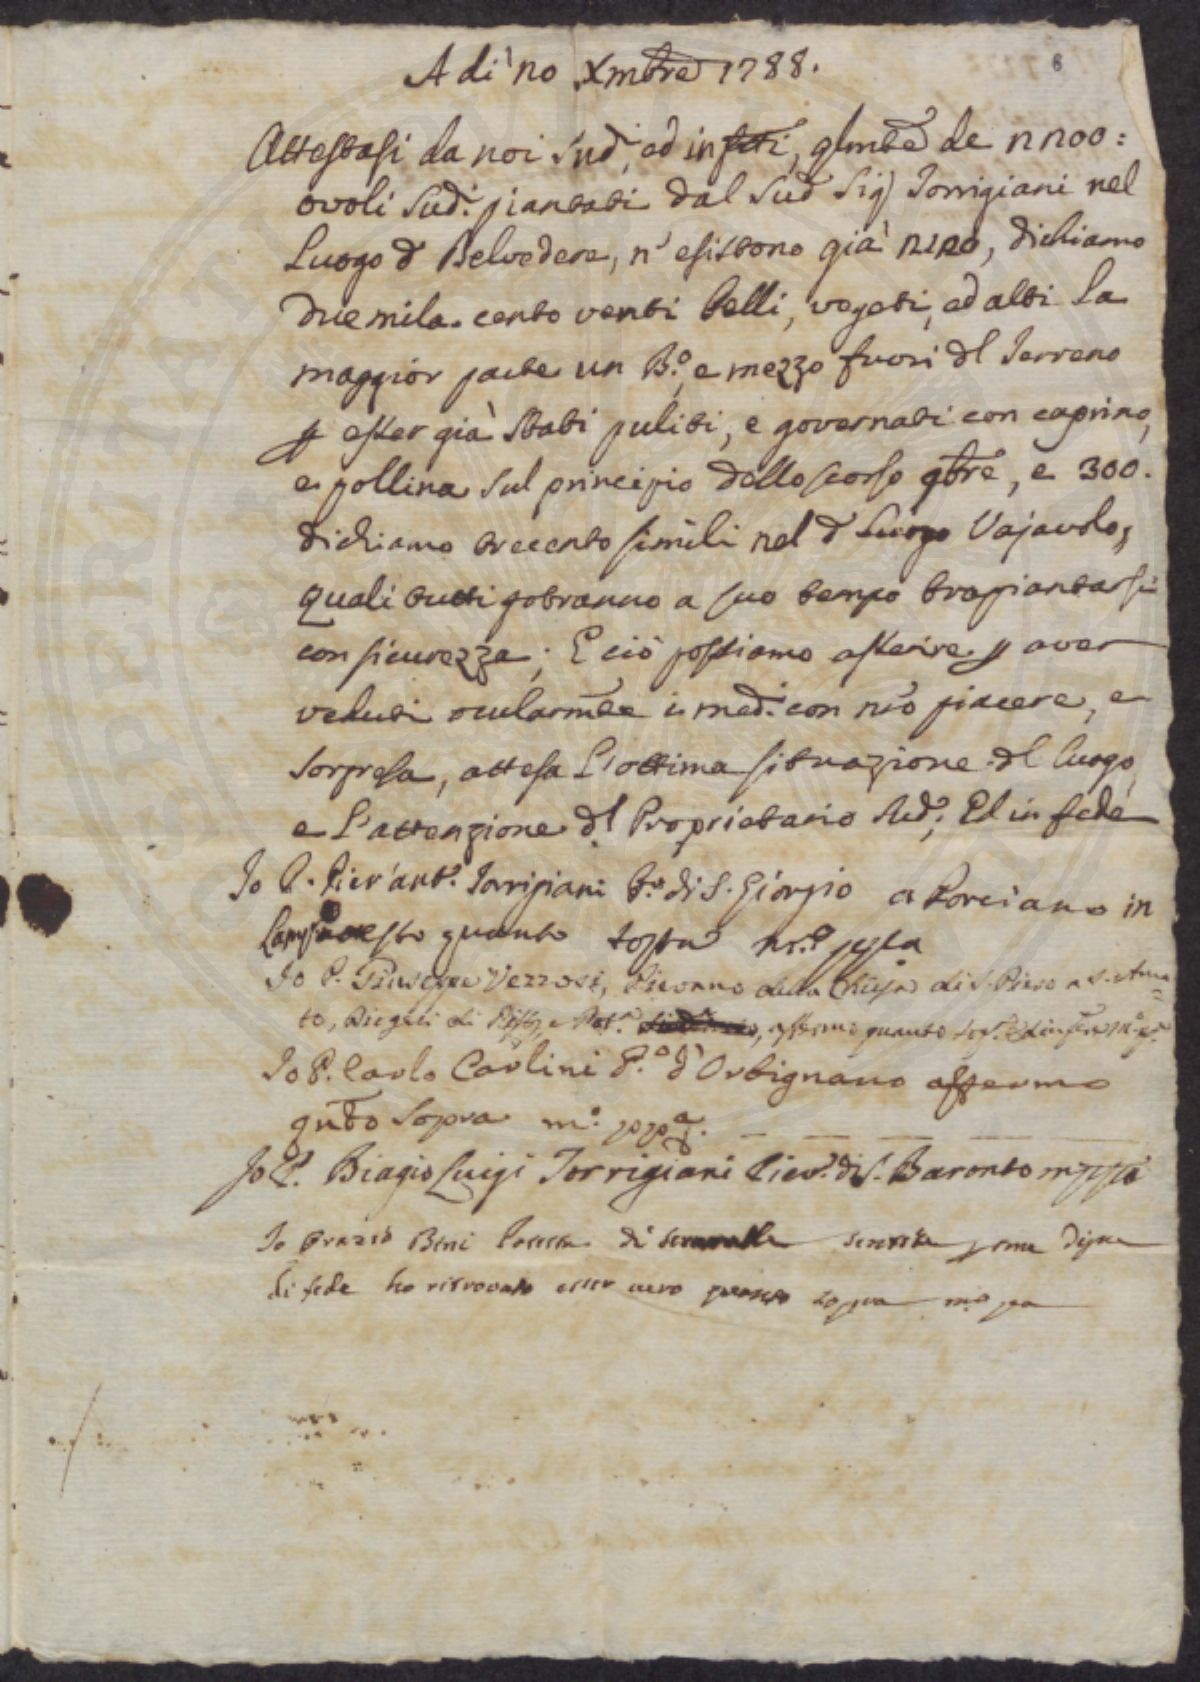 6
A dì 20 Xmbre 1788.
Attestasi da noi Sud:, ed infttti, qlmte de 2200:
ovoli Sud: piantati dal Sud Sig Torrigiani nel
Luogo d Belvedere, n' esistono già 2120, dichiamo
due mila cento venti belli, vegeti, ed alti la
maggior parte un B:º, e mezzo fuori dl Terreno
p esser già stati puliti, e governati con caprino,
e pollina sul principio dello scorso 9bre, e 300.
dichiamo trecento simili nel d Luogo Vajavolo,
quali tutti potranno a suo tempo trapiantarsi
con sicurezza; E ciò possiamo asserire p aver
veduti ocularmte i med: con nro piacere, e
sorpresa, attesa l'ottima situazione dl luogo,
e l'attenzione dl Proprietario Sud:; Ed in fede
Io P. Pier'Ant.º Torrigiani Pº di S. Giorgio a Porciano in
quanto sopra
Io P. Giuseppe Vezzosi, Pievano della Chiesa di S. Piero a
to, affermo quanto
Io P. Carlo Carlini P.º d'Orbignano affermo
qnto sopra m.º ppª.
Io P. Biagio Luigi Torrigiani Piev.º di S. Baronto mº ppa
Io Orazio Bini di Serravalle degne
di fede ho ritrovato esser vero quanto sopra mº pa